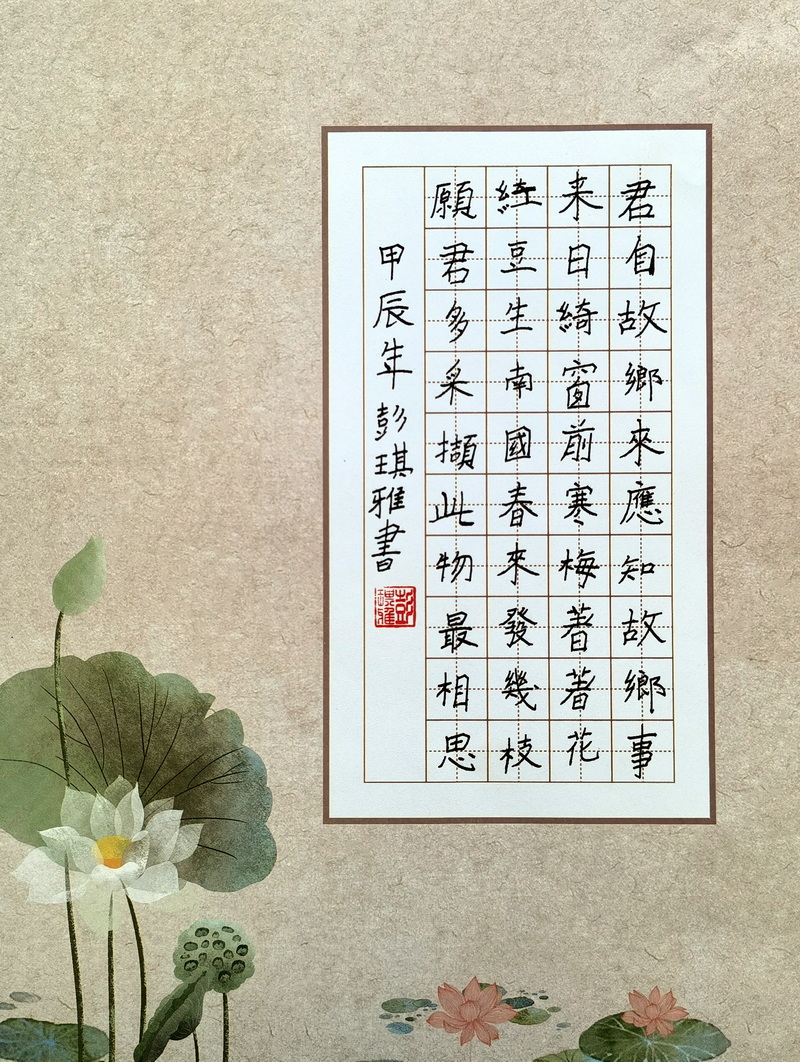 君自故鄉來應知故鄉事
来日綺窗前寒梅著著花
紅豆生南國春來發幾枝
願君多采擷此物最相思
甲辰年彭琪雅書
彭琪雅